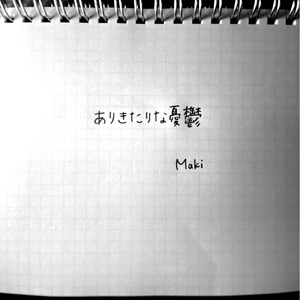 ありきたりな憂鬱
Maki